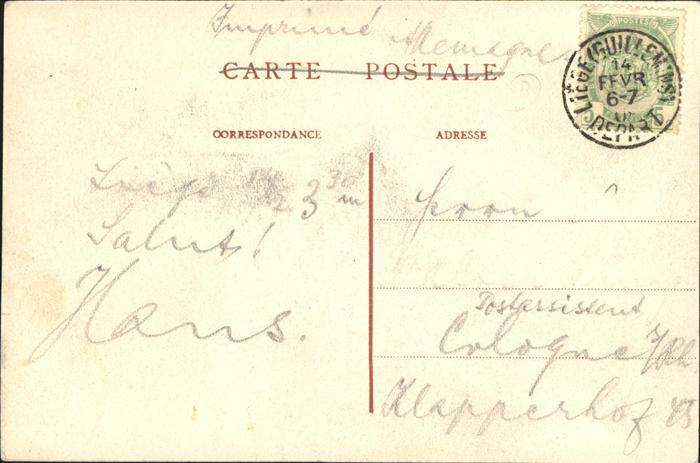 Imprimé Allemagne
CARTE POSTALE
POSTES
LIÈGE (GUILLEMINS)
14
FEVR
6-7
DEPART
CORRESPONDANCE
ADRESSE
Liège 14/2 3 30 m
Salut!
Hans.
Herrn
Postassistent
Cologne s/Rh
Klapperhof